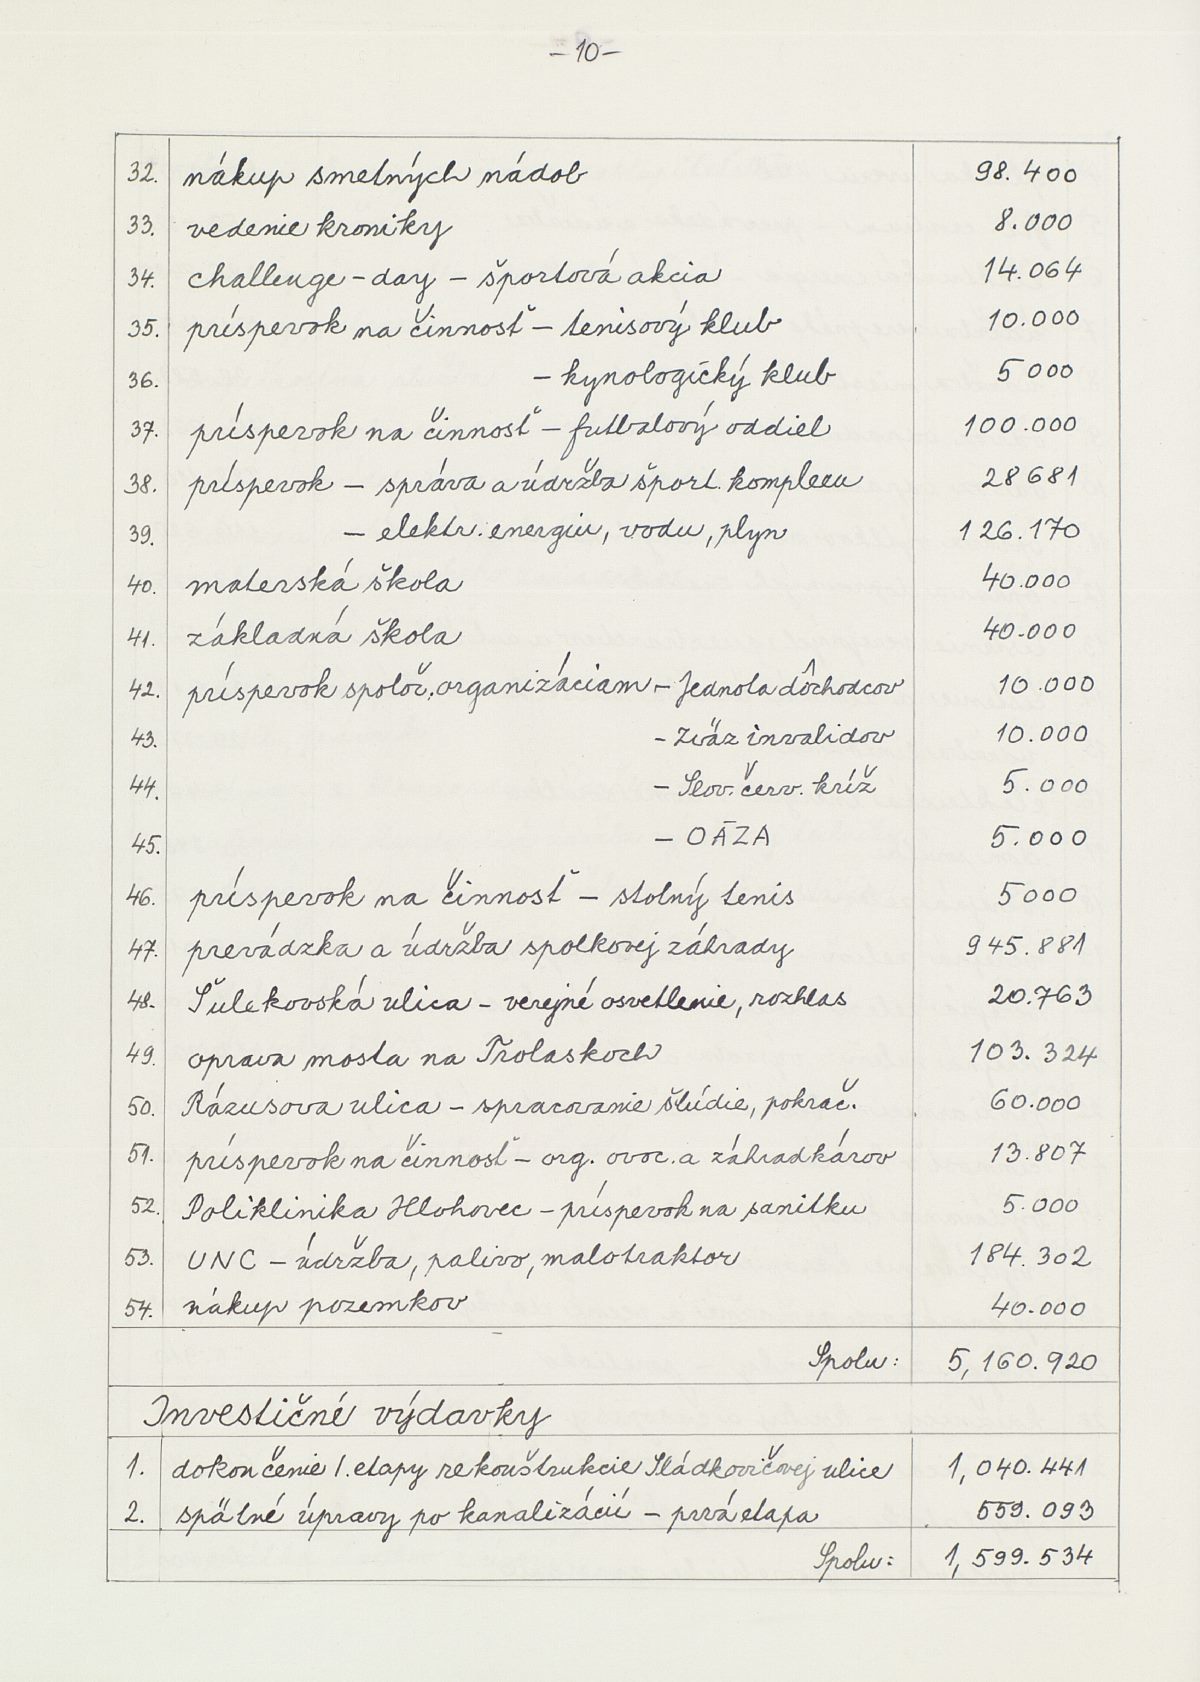 - 10 -
32. nákup smetných nádob 98.400
33. vedenie kroniky 8.000
34. challenge - day - športová akcia 14.064
35. príspevok na činnosť - tenisový klub 10.000
36. - kynologický klub 5 000
37. príspevok na činnosť - futbalový oddiel 100.000
38. príspevok - správa a údržba šport. komplexu 28 681
39. - elektr. energiu, vodu, plyn 126.170
40. materská škola 40.000
41. základná škola 40.000
42. príspevok spoloč. organizáciam - Jednota dôchodcov 10.000
43. - Zväz invalidov 10.000
44. - Slov. červ. kríž 5.000
45. - OÁZA 5.000
46. príspevok na činnosť - stolný tenis 5000
47. prevádzka a údržba spolkovej záhrady 945.881
48. Šulekovská ulica - verejné osvetlenie, rozhlas 20.763
49. oprava mosta na Trolaskoch 103.324
50. Rázusova ulica - spracovanie štúdie, pokrač. 60.000
51. príspevok na činnosť - org. ovoc. a záhradkárov 13.807
52. Poliklinika Hlohovec - príspevok na sanitku 5.000
53. UNC - údržba, palivo, malotraktor 184.302
54. nákup pozemkov 40.000
Spolu: 5,160.920
Investičné výdavky
1. dokončenie I. etapy rekonštrukcie Sládkovičovej ulice 1,040.441
2. spätné úpravy po kanalizácií - prvá etapa 559.093
Spolu: 1,599.534